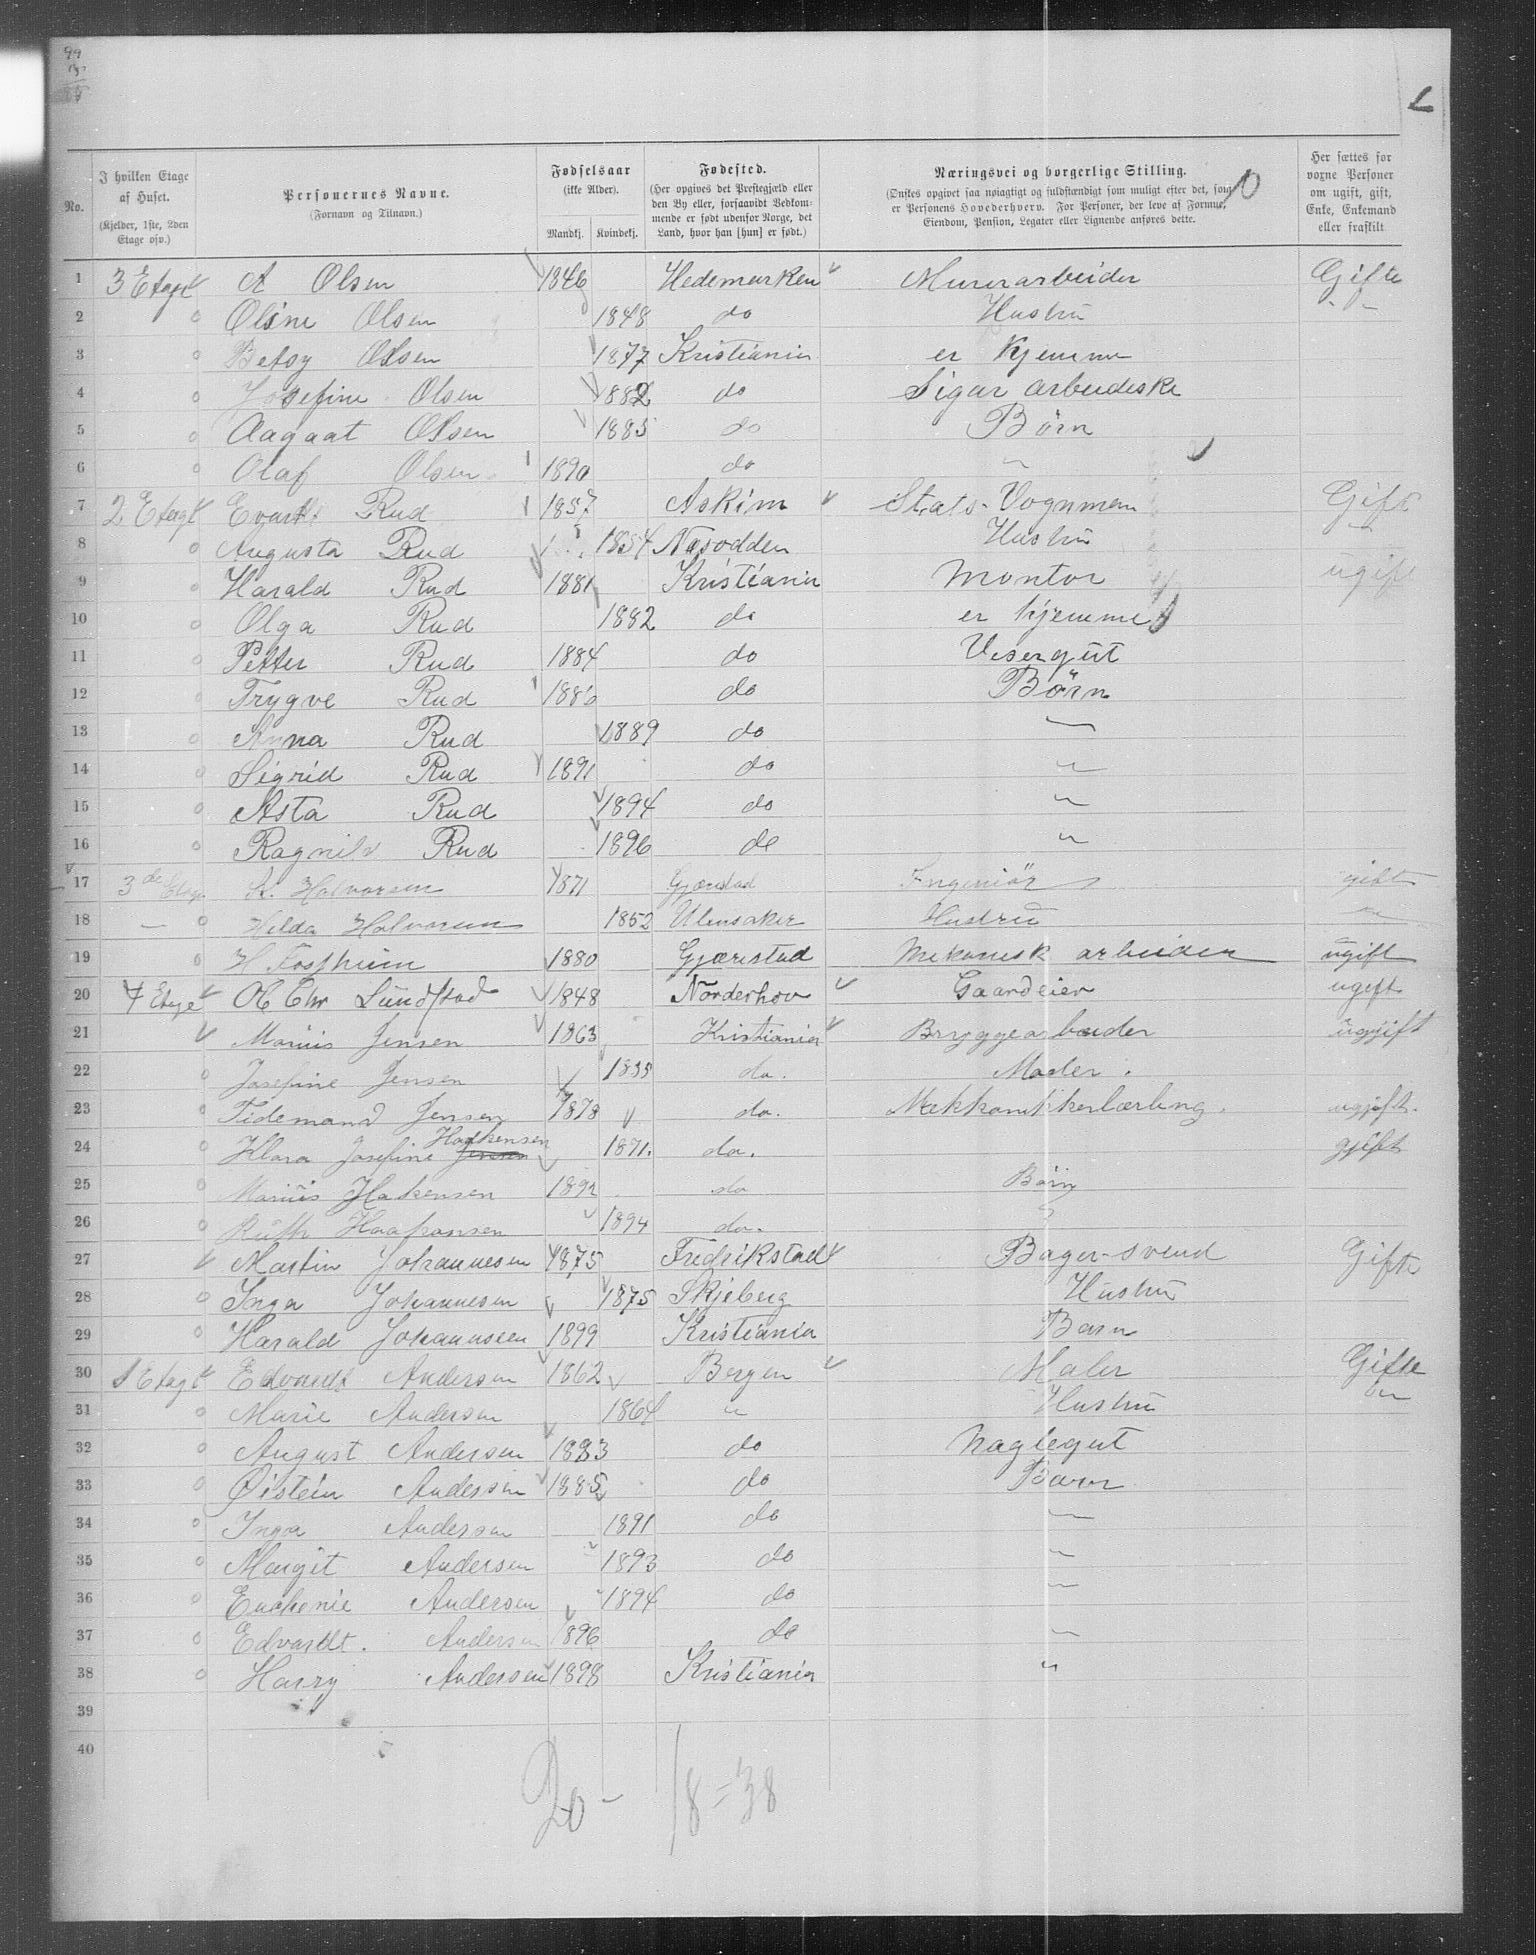 No. I hvilken Etage af Huset. (Kjelder, 1ste, 2den Etage osv.) Personernes Navne. (Fornavn og Tilnavn.) Fødselsaar (ikke Alder). Mandkj. Kvindekj. Fødested. (Her opgives det Prestegjæld eller den By eller, forsaavidt Vedkommende er født udenfor Norge, det Land, hvor han [hun] er født.) Næringsvei og borgerlige Stilling. (Ønskes opgivet saa nøiagtigt og fuldstændigt som muligt efter det, som er Personens Hovederhverv. For Personer, der leve af Formue, Eiendom, Pension, Legater eller Lignende anføres dette. Her sættes for voxne Personer om ugift, gift, Enke, Enkemand eller fraskilt
1 3 Etage A Olsen 1846 Hedemarken Murerarbeider Gifte
2 Oline Olsen 1848 do Hustru " "
3 Betsy Olsen 1877 Kristiania er hjemme
4 Josefine Olsen 1882 do Sigar arbeideske
5 Aagaat Olsen 1883 do Børn
6 Olaf Olsen 1890 do "
7 2 Etage Evardt Rud 1857 Askim Stats-Vognman Gift
8 Augusta Rud 1854 Næsodden Hustru "
9 Harald Rud 1881 Kristiania Montør ugift
10 Olga Rud 1882 do er hjemme
11 Petter Rud 1884 do Visergut
12 Trygve Rud 1886 do Børn
13 Anna Rud 1889 do "
14 Sigrid Rud 1891 do "
15 Asta Rud 1894 do "
16 Ragnild Rud 1896 do "
17 3de Etage Halvorsen 1871 Gjerstad Ingeniør gift
18 — Hilda Halvorsen 1852 Ulensaker Hustru "
19 H. Fossheim 1880 Gjærestad Mekanisk arbeider ugift
20 Etage Ol Chr Sundstad 1848 Norderhov Gaardeier ugift
21 Marius Jensen 1863 Kristiania Bryggearbeider ugjift
22 Josefine Jensen 1835 do. Moder.
23 Tidemand Jensen 1878 do. Mekkanikkerlærling. ugjift.
24 Klara Josefine Jensen Haakensen 1871. do. gjift
25 Marius Hakensen 1892 do Børn
26 Ruth Haakonsen 1894 do. "
27 Martin Johannesen 1875 Fredrikstad Bager-svend Gifte
28 Inga Johannesen 1875 Skjeberg Hustru
29 Harald Johannesen 1899 Kristiania Barn
30 1 Etage Edvardt Andersen 1862 Bergen Maler Gifte
31 Marie Andersen 1864 " Hustru "
32 August Andersen 1883 do Naglegut
33 Øistein Andersen 1885 do Barn
34 Inga Andersen 1891 do "
35 Margit Andersen 1893 do "
36 Euchenie Andersen 1894 do "
37 Edvardt. Andersen 1896 do "
38 Harry Andersen 1898 Kristiania "
39
40
20 - 18 = 38